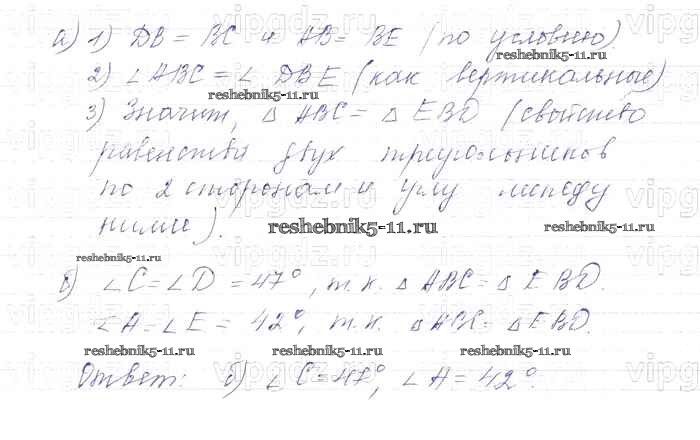 а) 1) DB = BC и AB = BE (по условию).
reshebnik5-11.ru
2) ∠ABC = ∠DBE (как вертикальные)
reshebnik5-11.ru
3) Значит, △ABC = △EBD (свойство
равенства двух треугольников
по 2 сторонам и углу между
ними).
reshebnik5-11.ru
reshebnik5-11.ru
б) ∠C = ∠D = 47°, т.к. △ABC = △EBD.
∠A = ∠E = 42°, т.к. △ABC = △EBD.
reshebnik5-11.ru reshebnik5-11.ru reshebnik5-11.ru
Ответ: б) ∠C = 47°, ∠A = 42°.